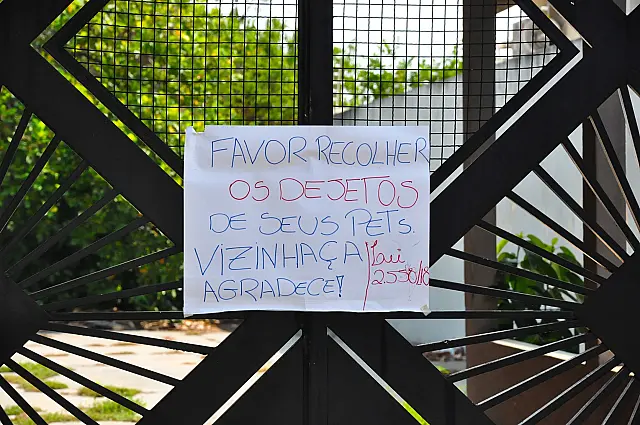 FAVOR RECOLHER
OS DEJETOS
DE SEUS PETs.
VIZINHAÇA
AGRADECE!
2.558/18